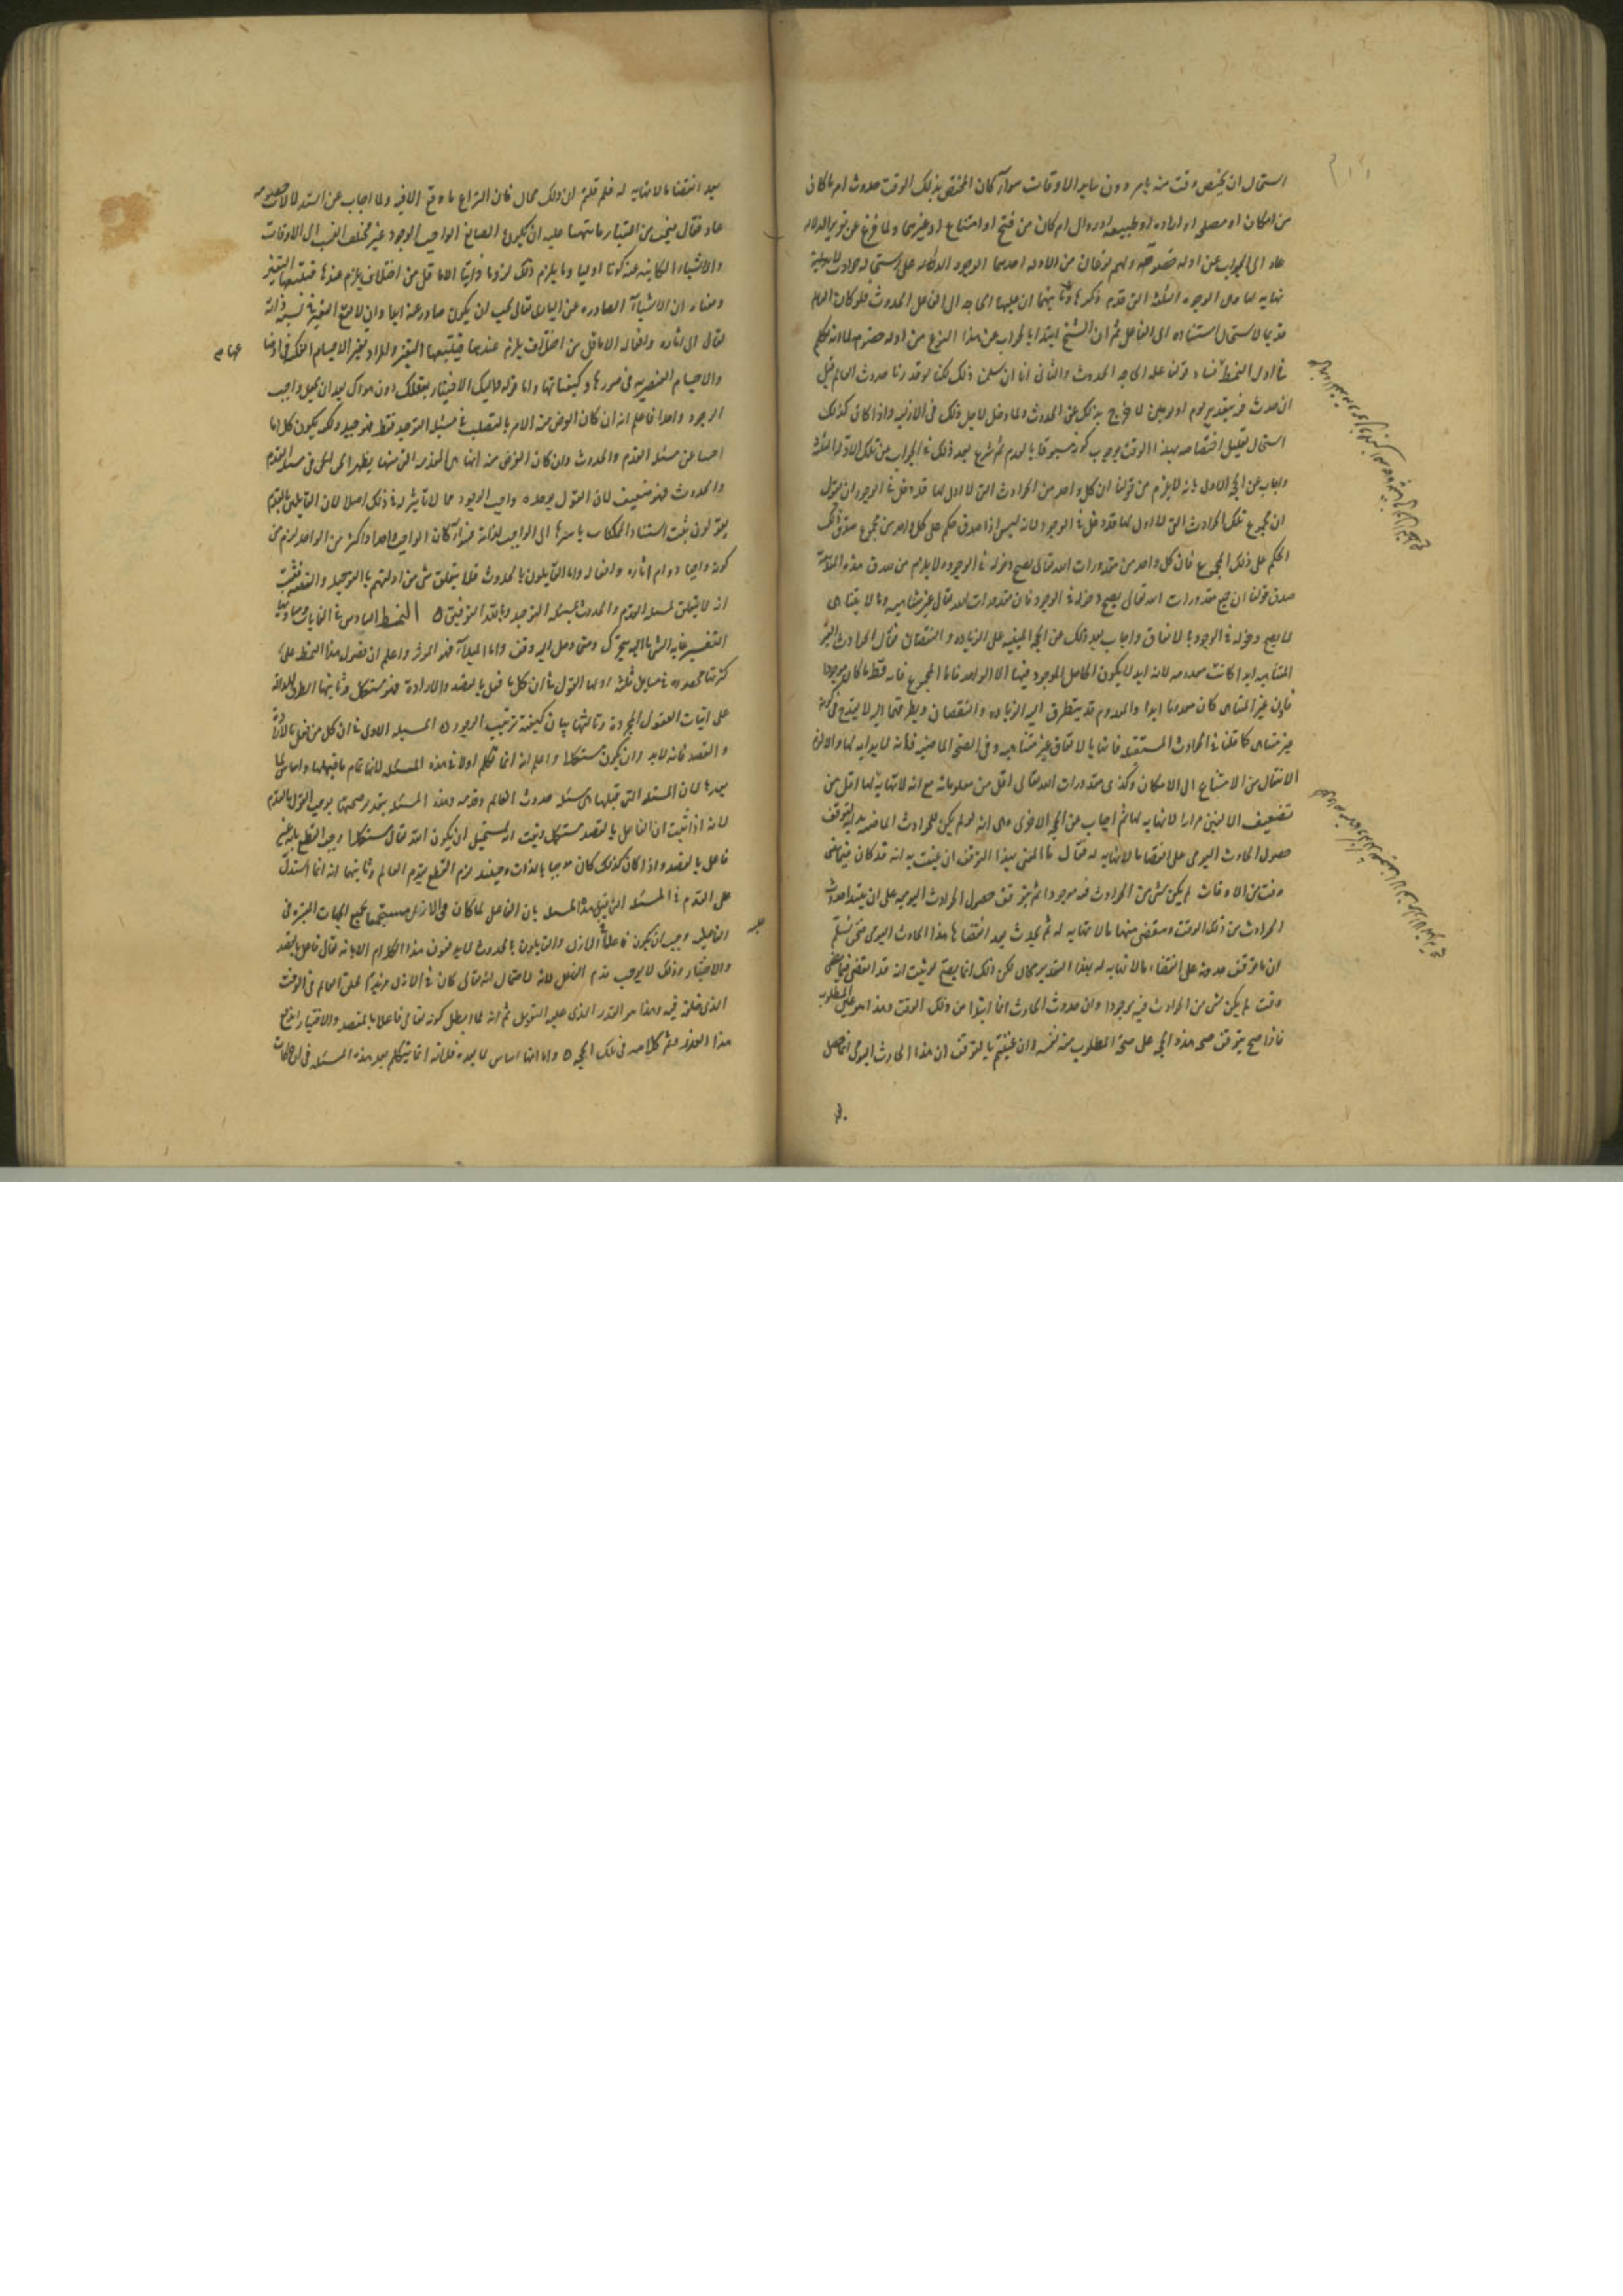 استحال ان يختص وقت منه بامر دون ساير الاوقات سوآء كان المختص بذلك الوقت حدوث امر ما كان
من امكان او مصلحه او اراده او طبيعه او زوال امر كان من قبح او امتناع او غيرهما ولما فرغ عن تقرير الدلاله
عاد الى الجواب عن ادله خصومه ولهم نوعان من الادله احدهما الوجوه الداله على استحاله حوادث لا بدايه
نهايه لها وهى الوجوه الثلثه التى تقدم ذكرها وثانيهما ان عليه الحاجه الى الفاعل الحدوث فلو كان العالم
قديما لاستحال استناده الى الفاعل ثم ان الشيخ ابتدا بالجواب عن هذا النوع من ادله خصومه لما انه تكلم
فى اول النمط فساد قولنا عله الحاجه الحدوث والثانى انا ان سلمنا ذلك لكنا لو قدرنا حدوث العالم قبل
ان حدث فيه بتقدير يوم او يومين لا يخرج بذلك عن الحدوث ولما دخل لاجل ذلك فى الازليه واذا كان كذلك
استحال تعليل اختصاصه بهذا الوقت بوجوب كونه مسبوقا بالعدم ثم شرع بعد ذلك فى الجواب عن تلك الادله الثلثه
واجاب عن الحجه الاولى بانه لا يلزم من قولنا ان كل واحد من الحوادث التى لا اول لها قد دخل فى الوجود ان نقول
ان مجموع تلك الحوادث التى لا اول لها قد دخل فى الوجود لانه ليس اذا صدق حكم على كل واحد من مجموع صدق ذلك
الحكم على ذلك المجموع فان كل واحد من مقدورات الله تعالى يصح دخوله فى الوجود ولا يلزم من صدق هذه المقدمة
صدق قولنا ان جميع مقدورات الله تعالى يصح دخوله فى الوجود فان مقدورات الله تعالى غير متناهيه وما لا يتناهى
لا يصح دخوله فى الوجود بالاتفاق واجاب بعد ذلك عن الحجه المبنيه على الزياده والنقصان فقال الحوادث الغير
المتناهيه ابدا كانت معدومه لانه ابدا لا يكون الحاصل الموجود منها الا الواحد فاما المجموع فانه قط ما كان موجودا
فاذن غير المتناهى كان معدوما ابدا والمعدوم قد يتطرق اليه الزياده والنقصان وتطرقهما اليه لا يمنع فى كونه
غير متناهى كما قلنا فى الحوادث المستقبله فانها بالاتفاق غير متناهيه وفى الصحه الماضيه فانه لا بدايه لها والا لزم
الانتقال من الامتناع الى الامكان وكذى مقدورات الله تعالى اقل من معلوماته مع انه لا نهاية لها اقل من
تضعيف الالفين مرارا لا نهايه لها ثم اجاب عن الحجه الاخرى وهى انه لو لم يكن للحوادث الماضيه بدايه لتوقف
حصول الحادث اليومى على انقضا ما لا نهايه له فقال ما المعنى بهذا التوقف ان عنيت به انه قد كان فيما مضى
وقت من الاوقات لم يكن شى من الحوادث فيه موجودا ثم توقف حصول الحوادث اليوميه على ان يبتدا حدوث
الحوادث من ذلك الوقت وينقضى منها ما لا نهايه له ثم يحدث بعد انقضائها هذا الحادث اليومى فحق نسلم
ان ما توقف حدوثه على انقضاء ما لا نهايه له بهذا التقدير محال لكن ذلك انما يصح لو ثبت انه قد انقضى فيما مضى
وقت لم يكن شى من الحوادث فيه موجودا وان حدوث الحادث انما ابتدا من ذلك الوقت وهذا هو عين المطلوب
فاذا صح يتوقف صحه هذه الحجه على صحه المطلوب منه نفسه وان عنيتم بالتوقف ان هذا الحادث اليومى انما حصل
بعد انقضا ما لا نهايه له فلم قلتم ان ذلك محال فان النزاع ما وقع الا فيه ولما اجاب عن استدلالات خصومه
عاد فقال فيجب من اعتبار ما نبهنا عليه ان يكون الصانع الواجب الوجود غير مختلف النسب الى الاوقات
والاشياء الكاينه عنه كونا اوليا وما يلزم ذلك لزوما ذاتيا الا ما يلزم من اختلاف يلزم عندها فيتبعها التغير
ومعناه ان الاشيآء الصادره عن البارى تعالى يجب ان يكون صادره عنه ابدا وان لا يقع التغير فى نسبة ذاته
تعالى الى اثاره وافعاله الا ما قل من اختلافات يلزم عندها فيتبعها التغير والمراد تغير الاجسام الفلكيه فى اوضاعها
والاجسام العنصريه فى صورها وكيفياتها واما قوله فاليك الاختيار بعقلك دون هواك بعد ان تجعل واجب
الوجود واحدا فاعلم انه ان كان الغرض منه الامر بالتصلب فى مسئله التوحيد فقط فهو جيد ولكنه يكون كلاما
اجنبيا عن مسئله القدم والحدوث وان كان الغرض منه انها هى المقدمه التى منها يظهر الحق فى مسئله القدم
والحدوث فهو ضعيف لان القول بوحده واجب الوجود مما لا تاثير له فى ذلك اصلا لان القايلين بالقدم
يقولون ثبت استناد الممكنات باسرها الى الواجب لذاته فسوآء كان الواجب واحدا او اكثر من الواحد لزم من
كونه واجبا دوام اثاره وافعاله واما القايلون بالحدوث فلا يتعلق شى من ادلتهم بالتوحيد والتعدد فثبت
انه لا يتعلق لمسئله القدم والحدوث بمسئله التوحيد وبالله التوفيق ٥ النمط السادس فى الغايات ومباديها
التفسير غايه الشى ما اليه يتحرك ومتى وصل اليه وقف واما المبدآء فهو المؤثر واعلم ان فصول هذا النمط على
كثرتها محصوره فى مسايل ثلثه اولها القول فى ان كل ما فعل بالقصد والاراده فهو مستكمل وثانيها الطرق الداله
على اثبات العقول المجردة وثالثها بيان كيفية ترتيب الوجود ٥ المسئله الاولى فى ان كل من فعل بالاراده
والقصد فانه لابد وان يكون مستكملا واعلم انه انما تكلم اولا فى هذه المسئله لانها تمام ما قبلها واساس لما
بعدها لان المسئله التى قبلها هى مسئله حدوث العالم وقدمه وهذه المسئله بتقدير صحتها يوجب القول بالقدم
لانه اذا ثبت ان الفاعل بالقصد مستكمل وثبت انه يستحيل ان يكون الله تعالى مستكملا وجب القطع بانه غير
فاعل بالقصد واذا كان كذلك كان موجبا بالذات وحينئذ لزم القطع بقدم العالم وثانيهما انه انما استدل
على القدم فى المسئله التى قبل هذه المسئله بان الفاعل لما كان فى الازل مستجمعا لجميع الجهات المعتبره فى
الفاعليه وجب ان يكون فاعلا فى الازل والقايلون بالحدوث لا يدفعون هذا الكلام الا بانه تعالى فاعل بالقصد
والاختيار وذلك لا يوجب قدم الفعل لانه لاحتمال انه تعالى كان فى الازل مريدا لخلق العالم فى الوقت
الذى خلقه فيه وهذا هو القدر الذى عليه التعويل ثم انه لما ابطل كونه تعالى فاعلا بالقصد والاختيار اندفع
هذا العذر وتم كلامه فى تلك الحجه ٥ واما انها اساس لما بعده فلانه انما يتكلم بعد هذه المسئله فى ان حركات